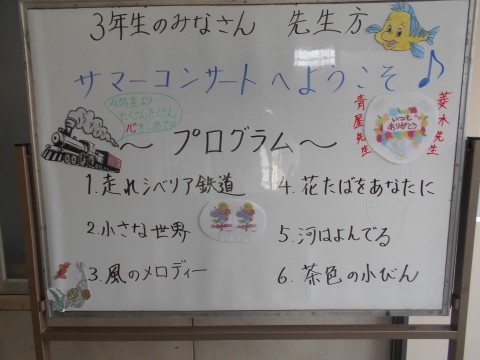 3年生のみなさん 先生方
サマーコンサートへようこそ♪
たくさんたくさん
心をこめて
いつも
ありがとう
青屋先生
菱木先生
～プログラム～
1.走れシベリア鉄道
2.小さな世界
3.風のメロディー
4.花たばをあなたに
5.河はよんでる
6.茶色の小びん